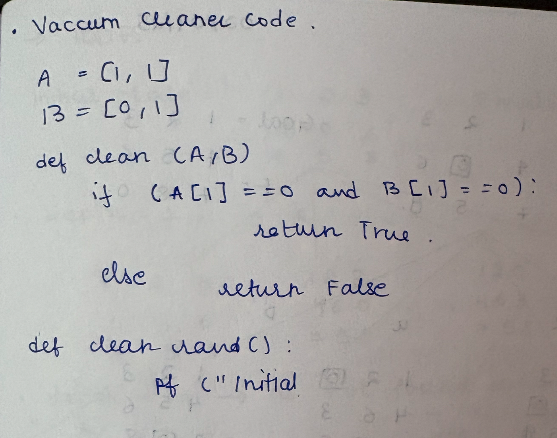 . Vaccum cleaner code .
A = [1, 1]
B = [0, 1]
def clean (A,B)
if (A[1] ==0 and B[1] ==0):
return True .
else
return False
def clean rand():
pf ("Initial